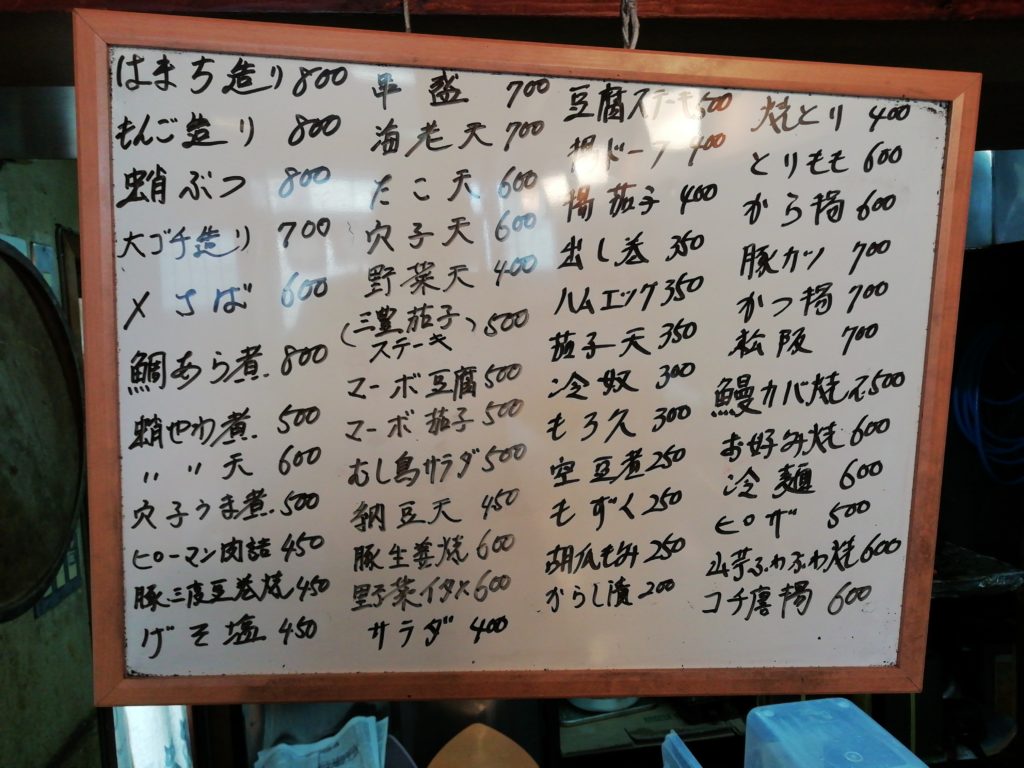 はまち造り 800
もんご造り 800
蛸ぶつ 800
大ゴチ造り 700
〆さば 600
鯛あら煮 800
蛸やわ煮 500
〃 〃 天 600
穴子うま煮 500
ピーマン肉詰 450
豚三度豆巻焼 450
げそ塩 450
串盛 700
海老天 700
たこ天 600
穴子天 600
野菜天 400
(三豊茄子)
ステーキ 500
マーボ豆腐 500
マーボ茄子 500
むし鳥サラダ 500
納豆天 450
豚生姜焼 600
野菜イタメ 600
サラダ 400
豆腐ステーキ 500
400
揚茄子 400
出し巻 350
ハムエッグ 350
茄子天 350
冷奴 300
もろ久 300
空豆煮 250
もずく 250
胡瓜もみ 250
からし漬 200
焼とり 400
とりもも 600
から揚 600
豚カツ 700
かつ揚 700
松阪 700
鰻カバ焼 500
お好み焼 600
冷麺 600
ピザ 500
山芋ふわふわ焼 600
コチ唐揚 600